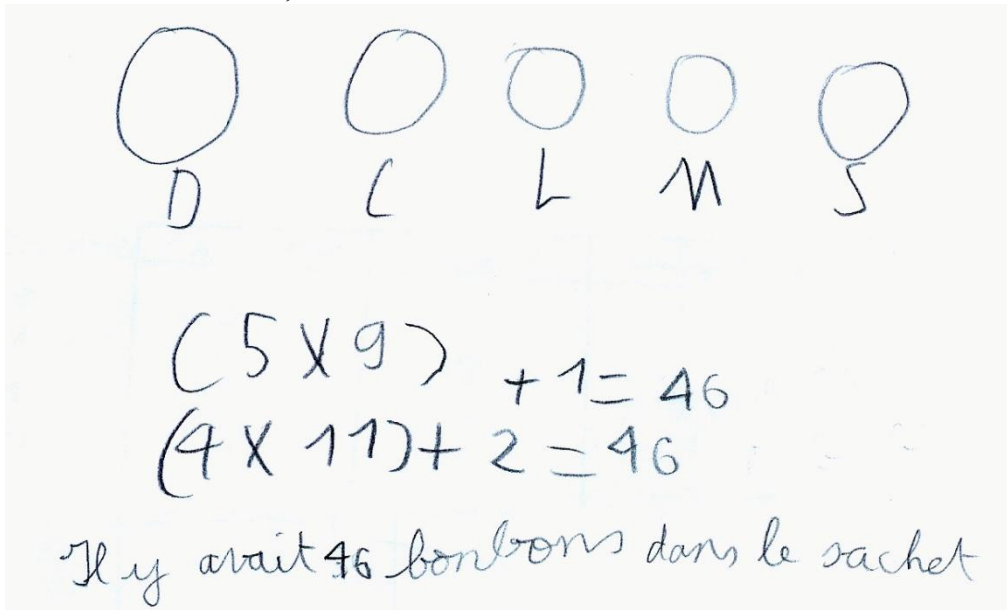 D C L M S
(5 X 9) + 1 = 46
(4 X 11) + 2 = 46
Il y avait 46 bonbons dans le sachet